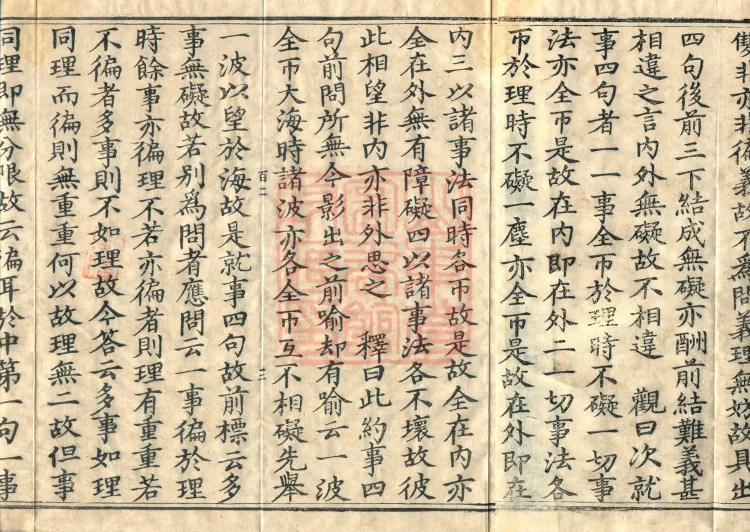 非亦非徧義故不爲問義理無妨故具出
四句後前三下結成無礙亦酬前結難義甚
相違之言內外無礙故不相違　觀曰次就
事四句者一一事全帀於理時不礙一切事
法亦全帀是故在內即在外二一切事法各
帀於理時不礙一塵亦全帀是故在外即在
內三以諸事法同時各帀故是故全在內亦
全在外無有障礙四以諸事法各不壞故彼
此相望非內亦非外思之　釋曰此約事四
句前問所無今影出之前喻却有喻云一波
全帀大海時諸波亦各全帀互不相礙先舉
百二　三
一波以望於海故是就事四句故前標云多
事無礙故若別爲問者應問云一事徧於理
時餘事亦徧理不若亦徧者則理有重重若
不徧者多事則不如理故今答云多事如理
同理而徧則無重重何以故理無二故但事
同理即無分限故云徧耳於中第一句一事